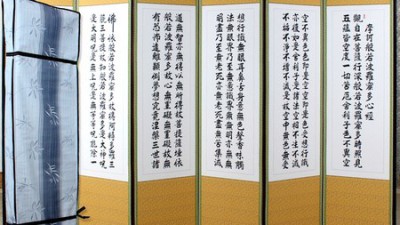 摩訶般若波羅蜜多心經
觀自在菩薩行深般若波羅蜜多時照見
五蘊皆空度一切苦厄舍利子色不異空
空不異色色即是空空即是色受想行識
亦復如是舍利子是諸法空相不生不滅
不垢不淨不增不減是故空中無色無受
想行識無眼耳鼻舌身意無色聲香味觸
法無眼界乃至無意識界無無明亦無無
明盡乃至無老死亦無老死盡無苦集滅
道無智亦無得以無所得故菩提薩埵依
般若波羅蜜多故心無罣礙無罣礙故無
有恐怖遠離顛倒夢想究竟涅槃三世諸
佛依般若波羅蜜多故得阿耨多羅三
藐三菩提故知般若波羅蜜多是大神呪
是大明呪是無上呪是無等等呪能除一